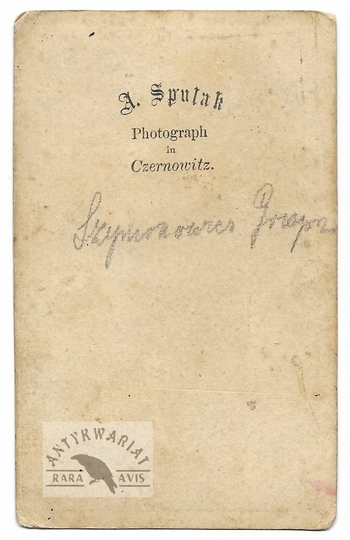 A. Spulak
Photograph
in
Czernowitz.
Szymonowicz
ANTYKWARIAT
RARA AVIS